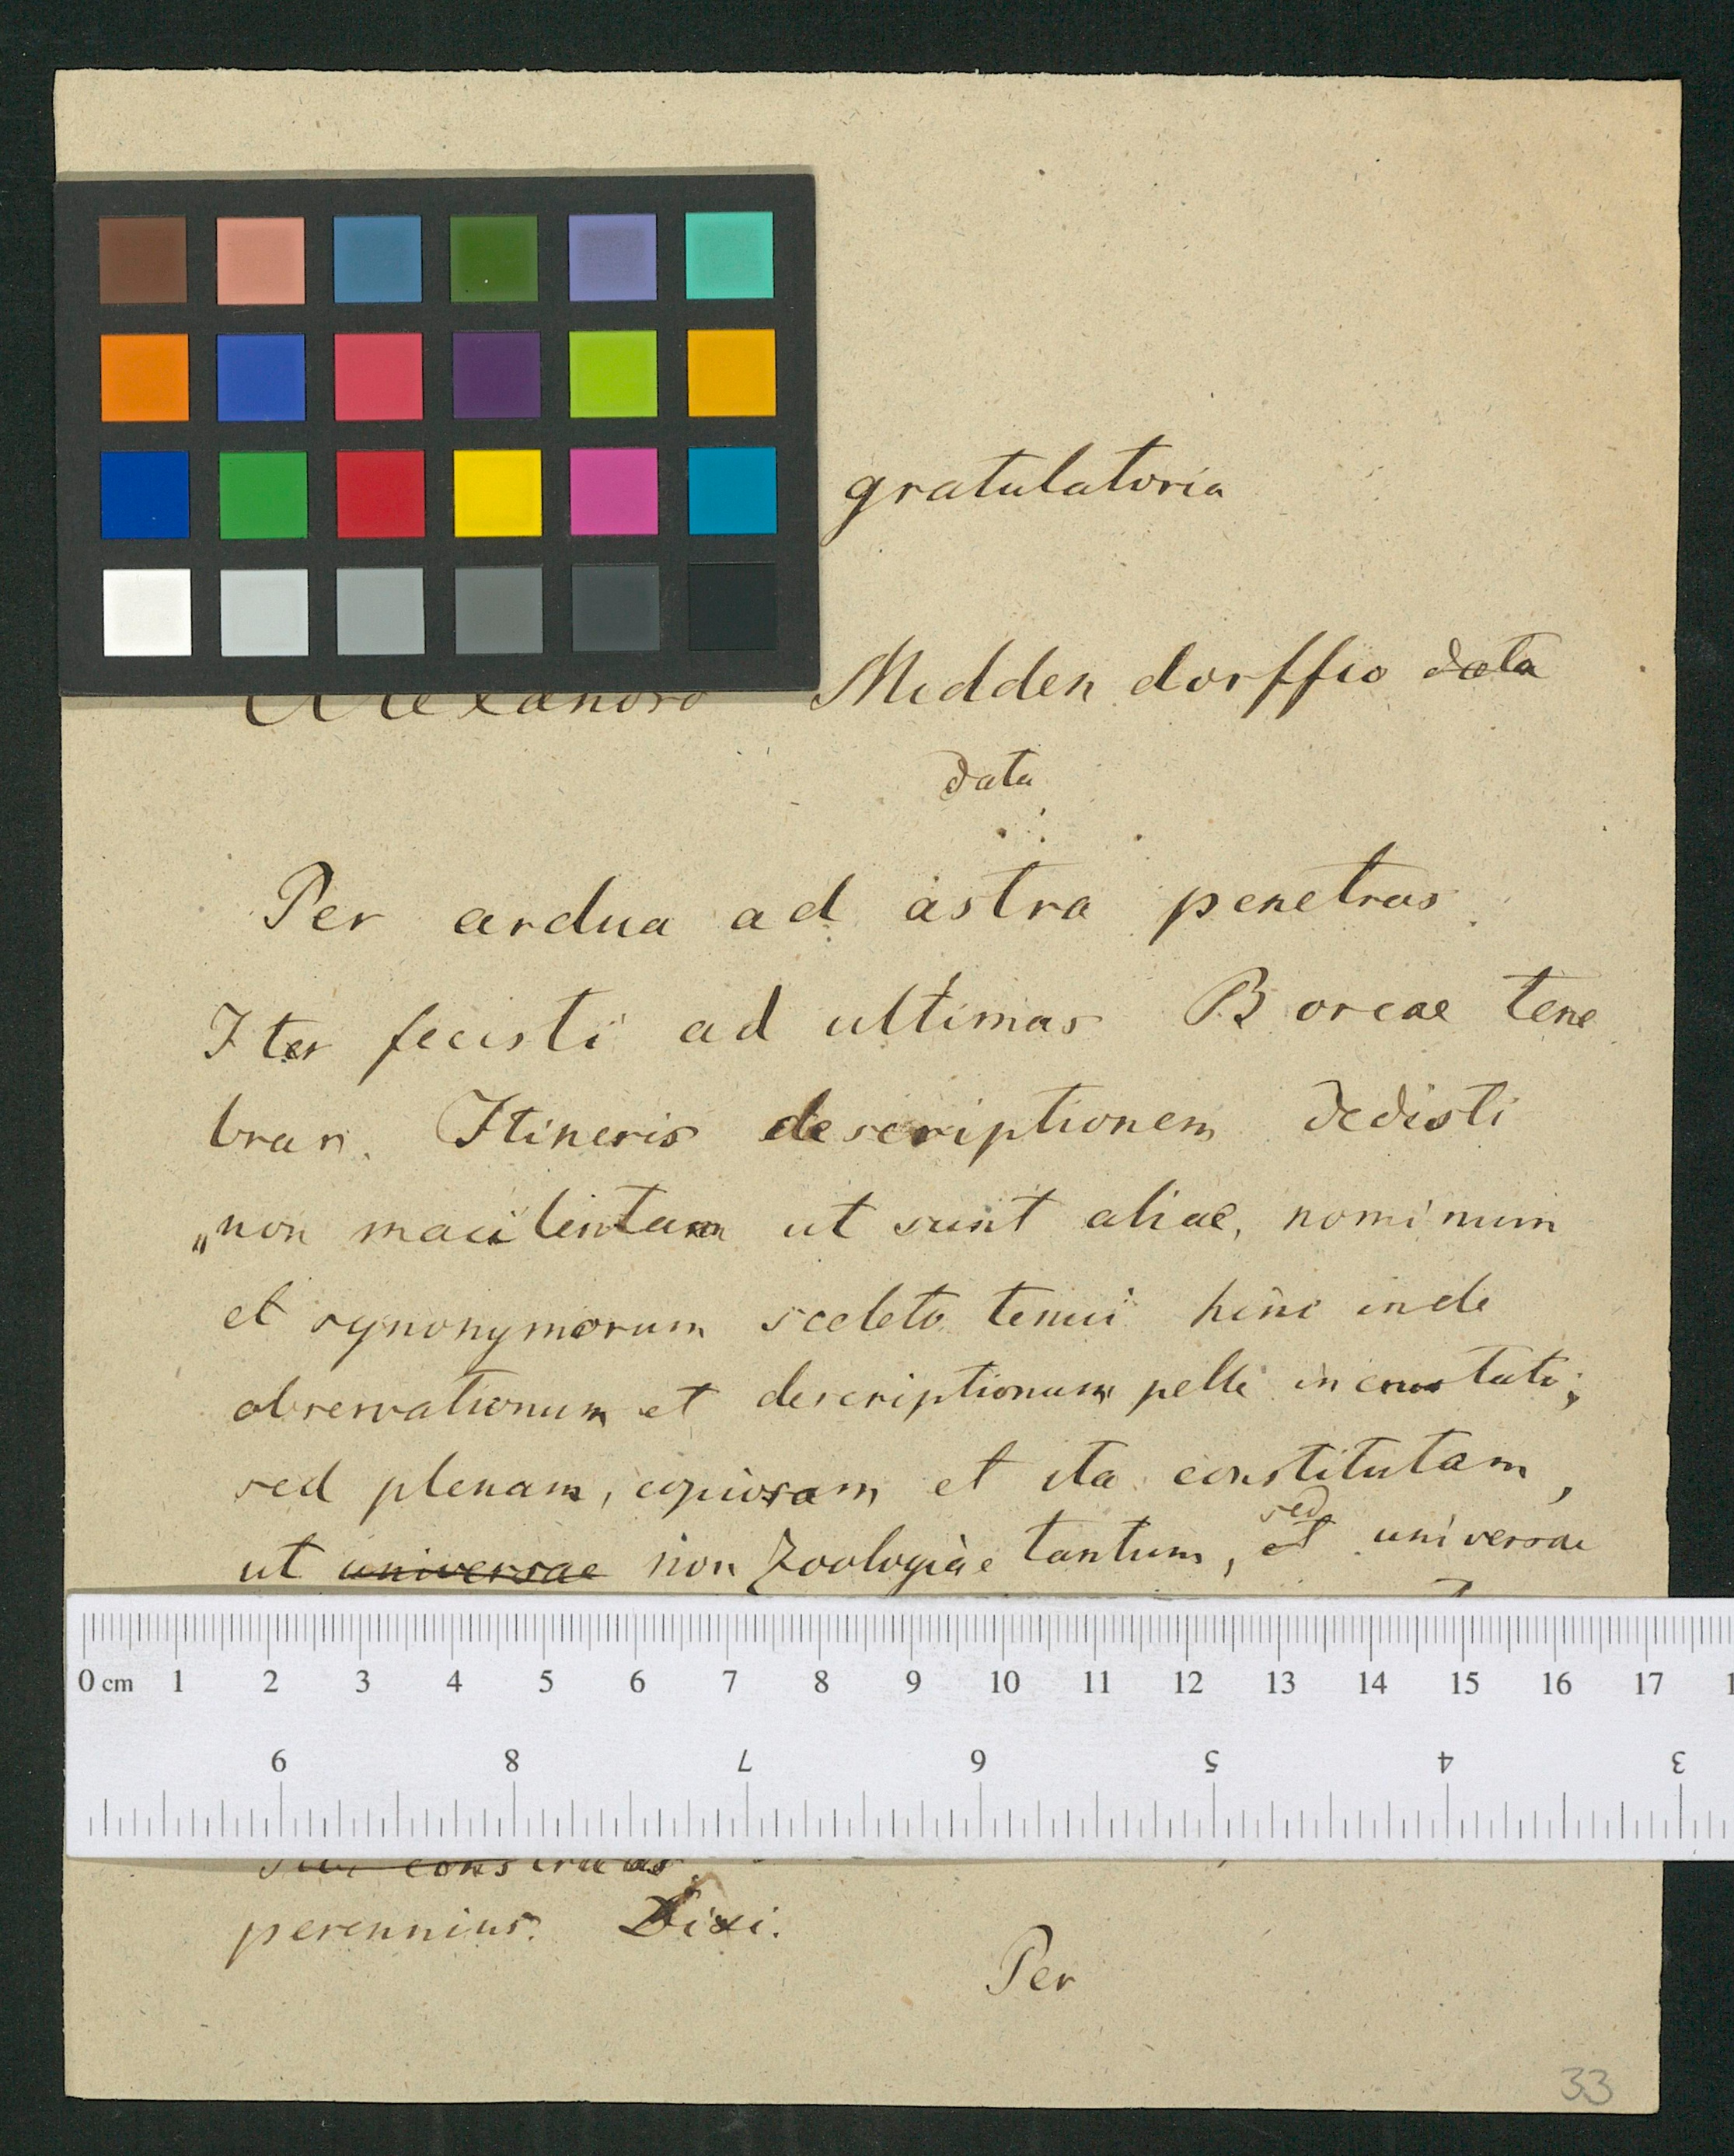 gratulatoria
Alexandro Middendorffio data
data
Per ardua ad astra penetras.
Iter fecisti ad ultimas Boreae tene
bras. Itineris descriptionem dedisti
„non macilentam ut sunt aliae, nominum
et synonymorum sceleto tenui hinc inde
observationum et descriptionum pelle incrustato;
sed plenam, copiosam et ita constitutam,
sed
ut universae non Zoologiae tantum, et universae
0 cm 1 2 3 4 5 6 7 8 9 10 11 12 13 14 15 16 17 1
9 8 7 6 5 4 3
construas
perennius. Dixi.
Per
33